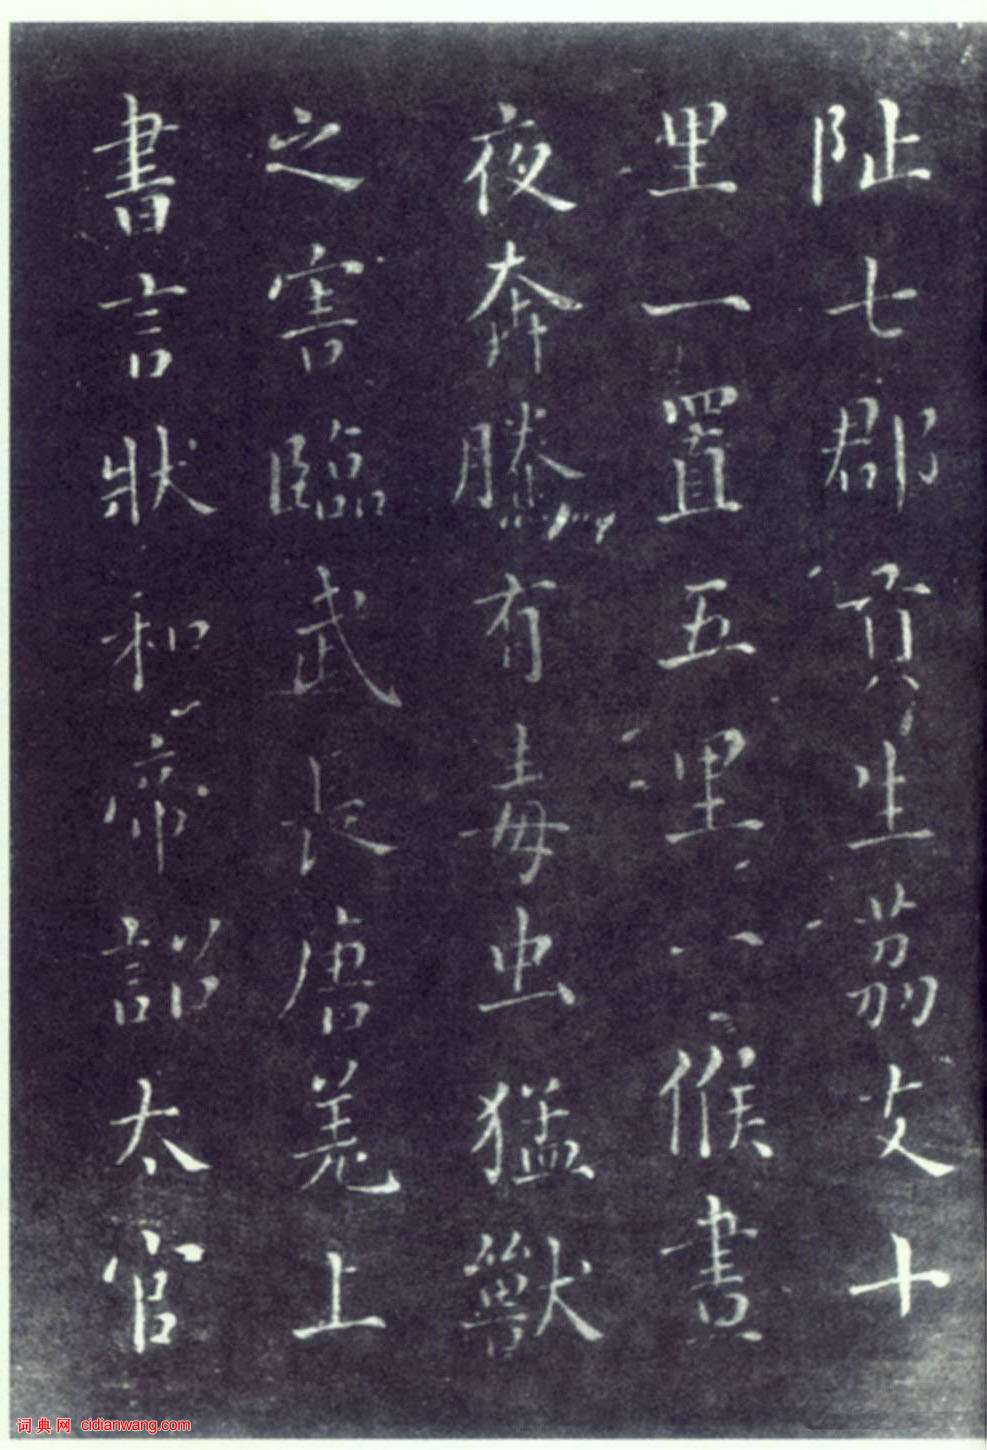 阯七郡貢生茘支十
里一置五里一候晝
夜奔騰有毒虫猛獸
之害臨武長唐羌上
書言狀和帝詔太官
词典网 cidianwang.com